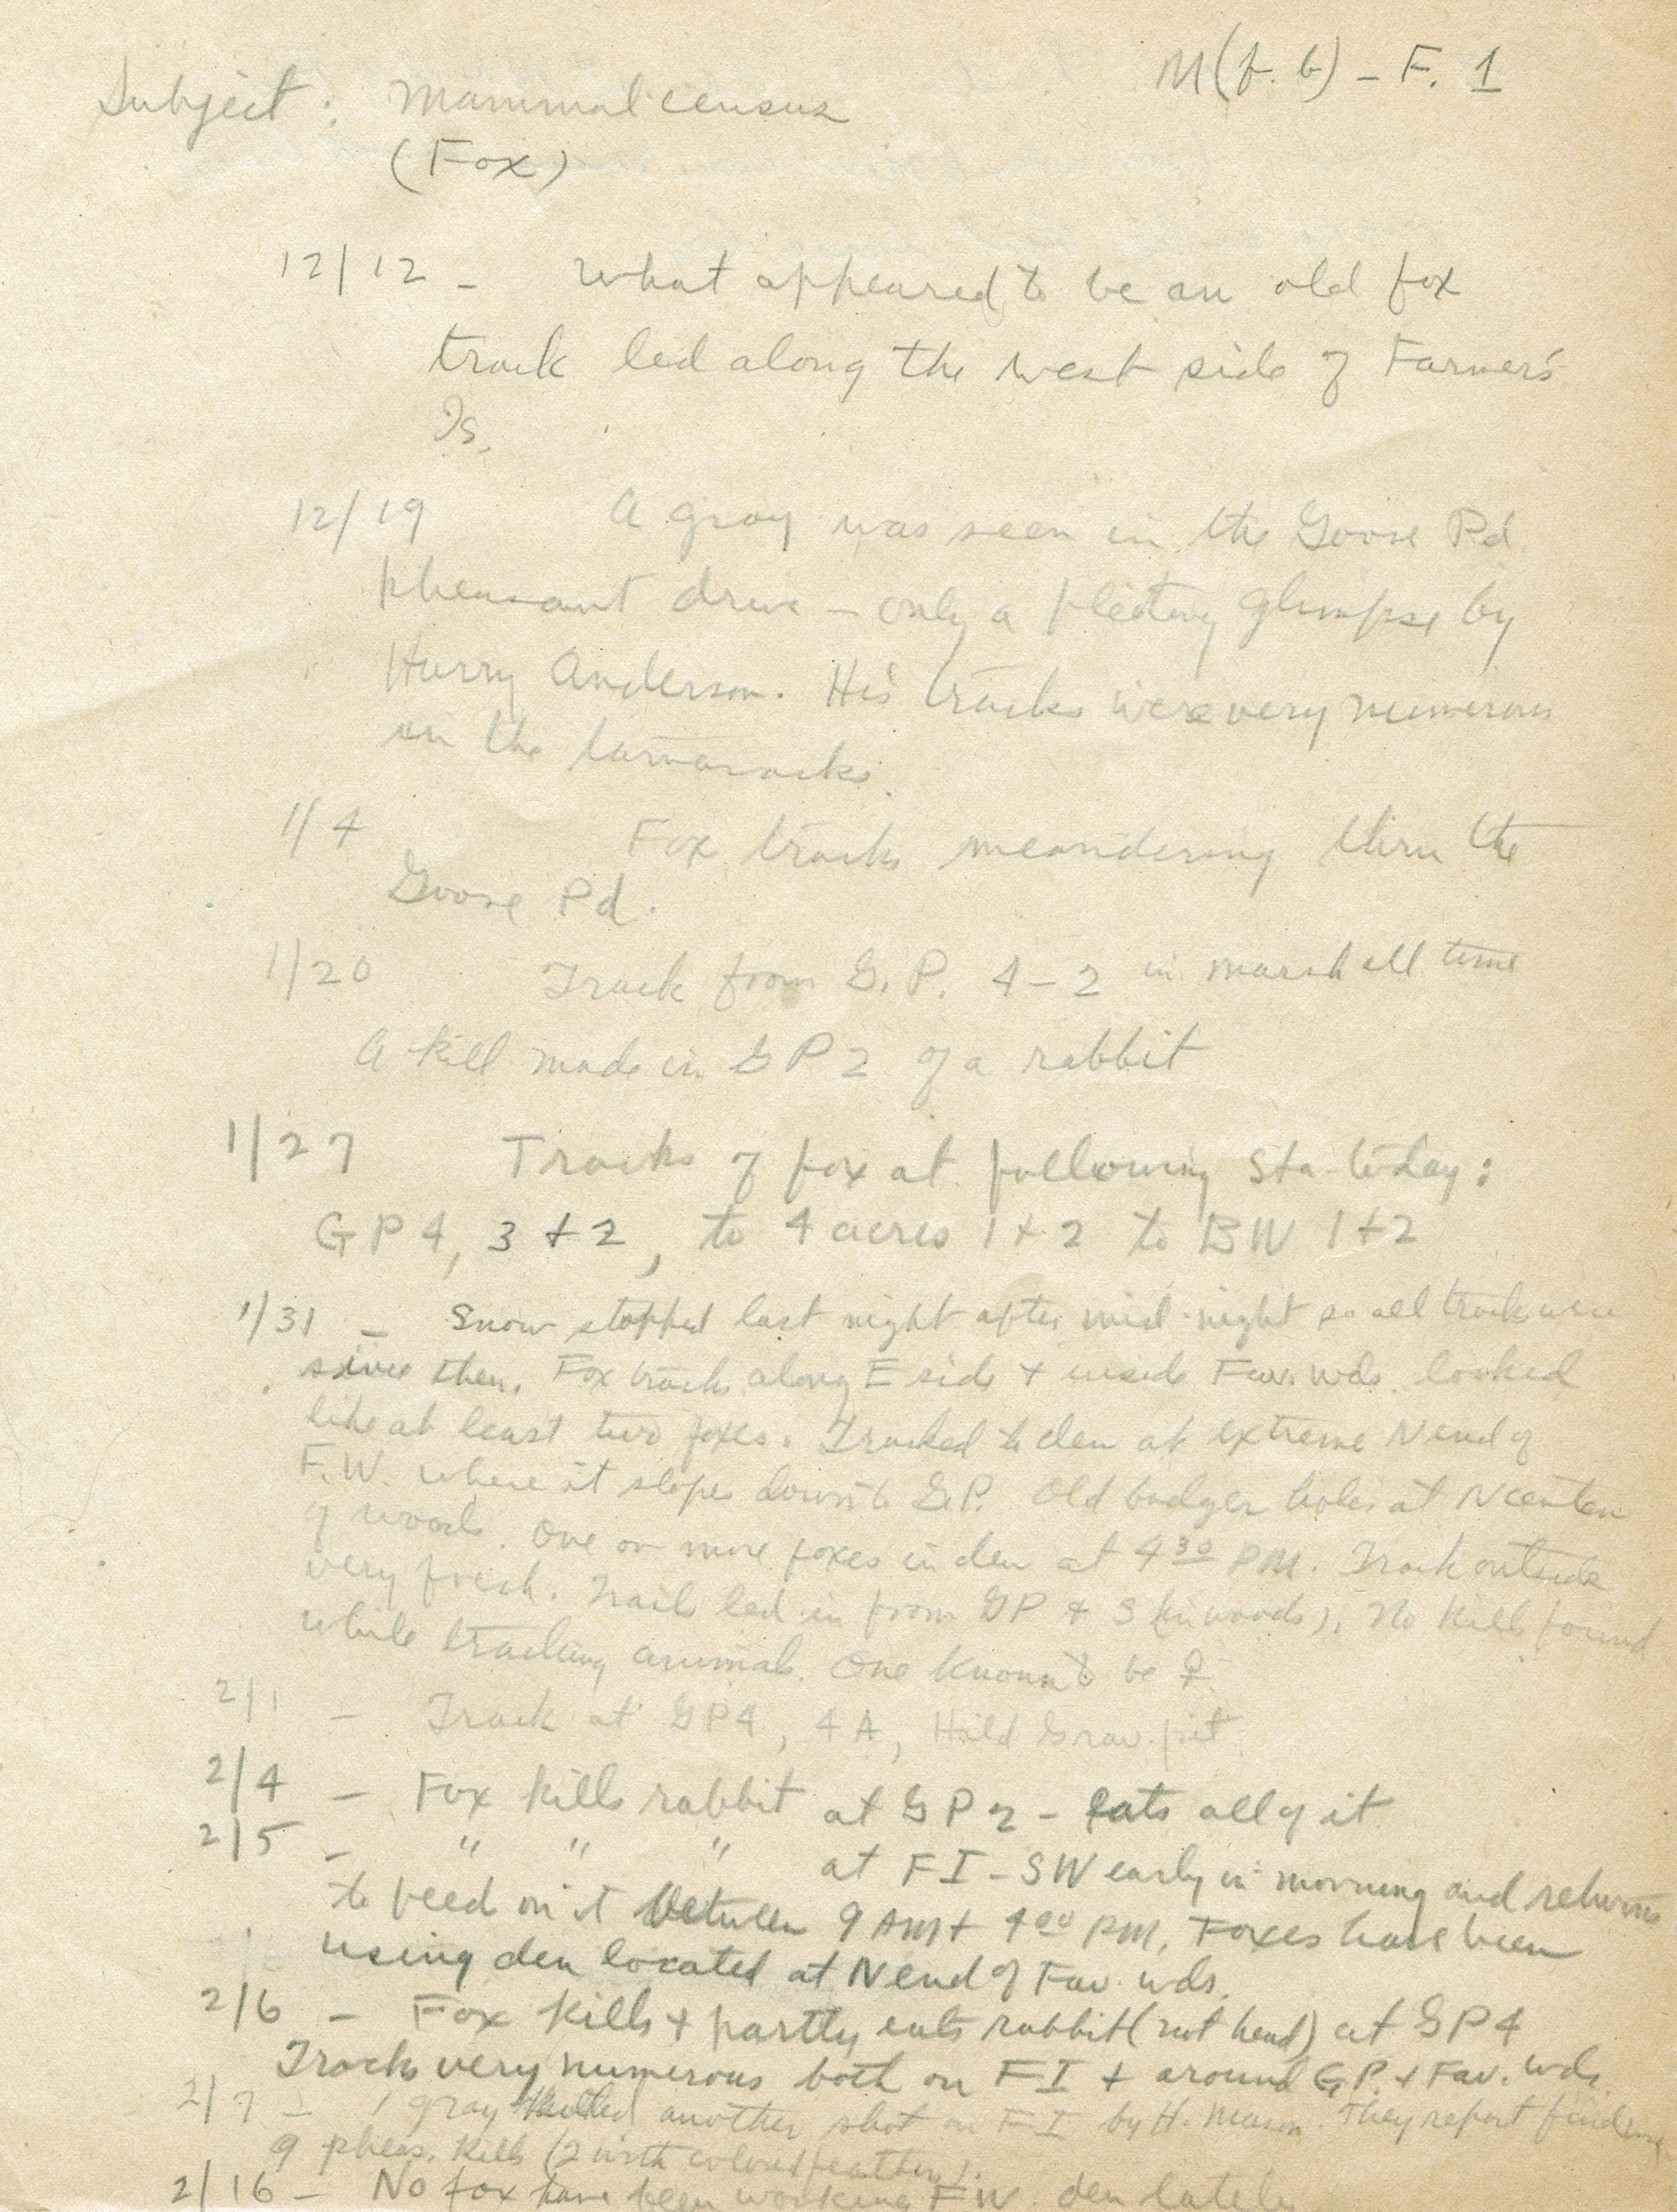 M(f.b) - F. 1
Subject: Mammal census
(Fox)
12/12 - What appeared to be an old fox
track led along the west side of Farmer's
Is.
12/19 A gray was seen in the Goose Pd.
pheasant drive - only a fleeting glimpse by
Harry Anderson. His tracks were very numerous
in the tamaracks.
1/4 Fox tracks meandering thru the
Goose Pd.
1/20 Track from G.P. 4-2 in marsh all time
A kill made in GP 2 of a rabbit
1/27 Tracks of fox at following Sta. today:
GP 4, 3 + 2, to 4 acres 1 + 2 to BW 1 + 2
1/31 - Snow stopped last night after mid-night so all tracks were
since then. Fox tracks along E side + inside Fav. wds. looked
like at least two foxes. Tracked to den at extreme N end of
F.W. where it slopes down to G.P. Old badger holes at N center
of woods. One or more foxes in den at 4 30 PM. Track outside
very fresh. Trails led in from GP + S (in woods). No kills found
while tracking animals. One known to be ♀
2/1 - Track at GP4, 4A, Hild Grav. pit
2/4 - Fox kills rabbit at GP 2 - Eats all of it
2/5 - " " " at FI - SW early in morning and returns
to feed on it between 9 AM + 4 00 PM. Foxes have been
using den located at N end of Fav. wds.
2/6 - Fox kills + partly eats rabbit (not head) at GP4
Tracks very numerous both on FI + around G.P. + Fav. wds.
2/7 - 1 gray another shot on FI by H. Mason. They report finding
9 pheas. kills (2 with colored feathers).
2/16 - No fox have been working F.W. den lately